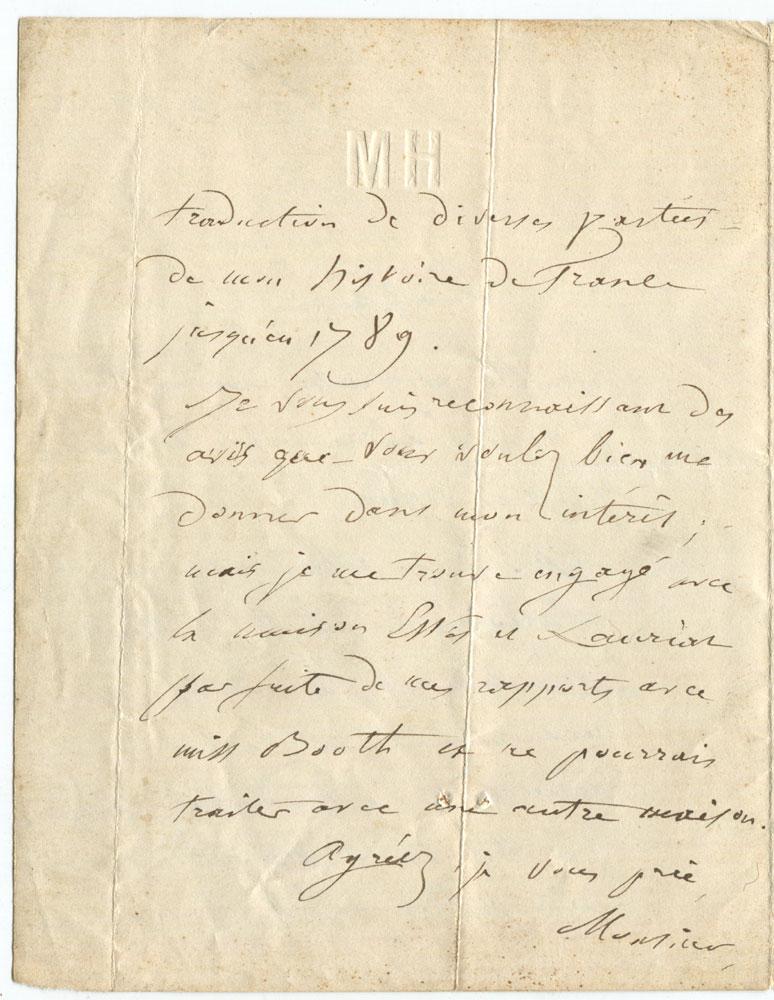 MH
traduction de diverses parties
de mon histoire de France
jusqu'en 1789.
Je vous suis reconnaissant des
avis que vous voulez bien me
donner dans mon intérêt ;
mais je me trouve engagé avec
la maison Estes et Lauriat
par suite de mes rapports avec
miss Booth et ne pourrais
traiter avec une autre maison.
Agréez, je vous prie,
Monsieur,